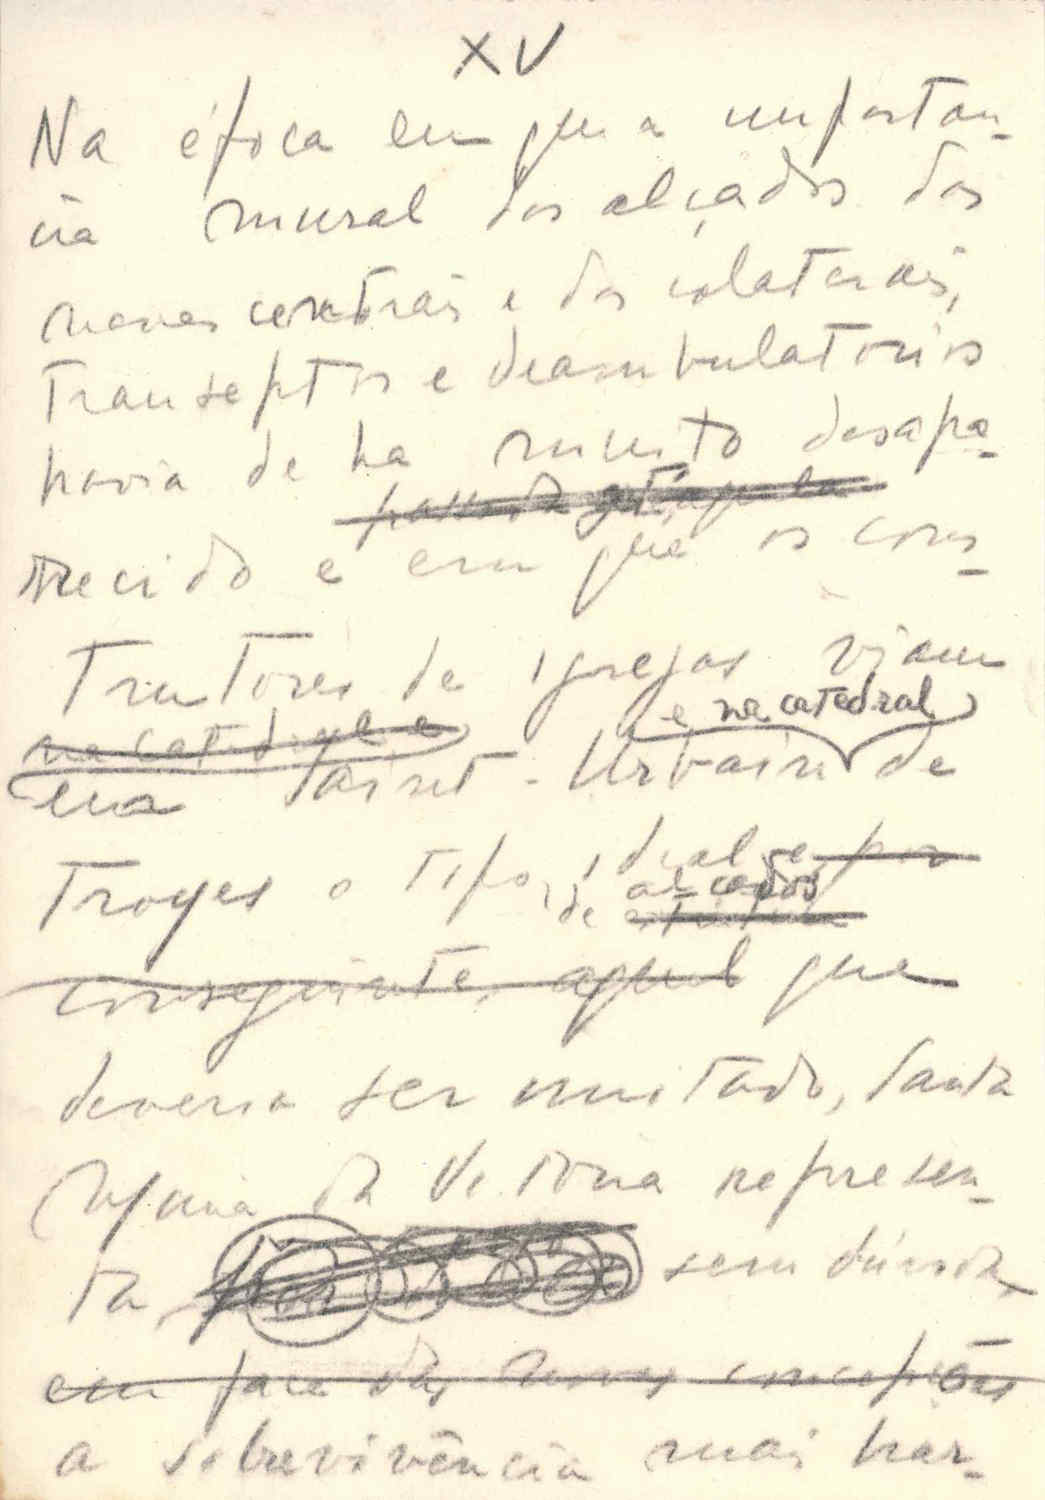 XV
Na época em que a importan-
cia mural dos alçados das
naves centrais e das colaterais,
transeptos e deambulatorios
havia de ha muito desapa-
recido e em que os cons-
trutores de igrejas viam
e na catedral
na catedral e
em Saint-Urbain de
Troyes o tipo ideal e por
de alçados
conseguinte, aquel que
deveria ser imitado, Santa
Maria da Vitoria represen-
ta sem dúvida
em face das novas concepções
a sobrevivência mais har-